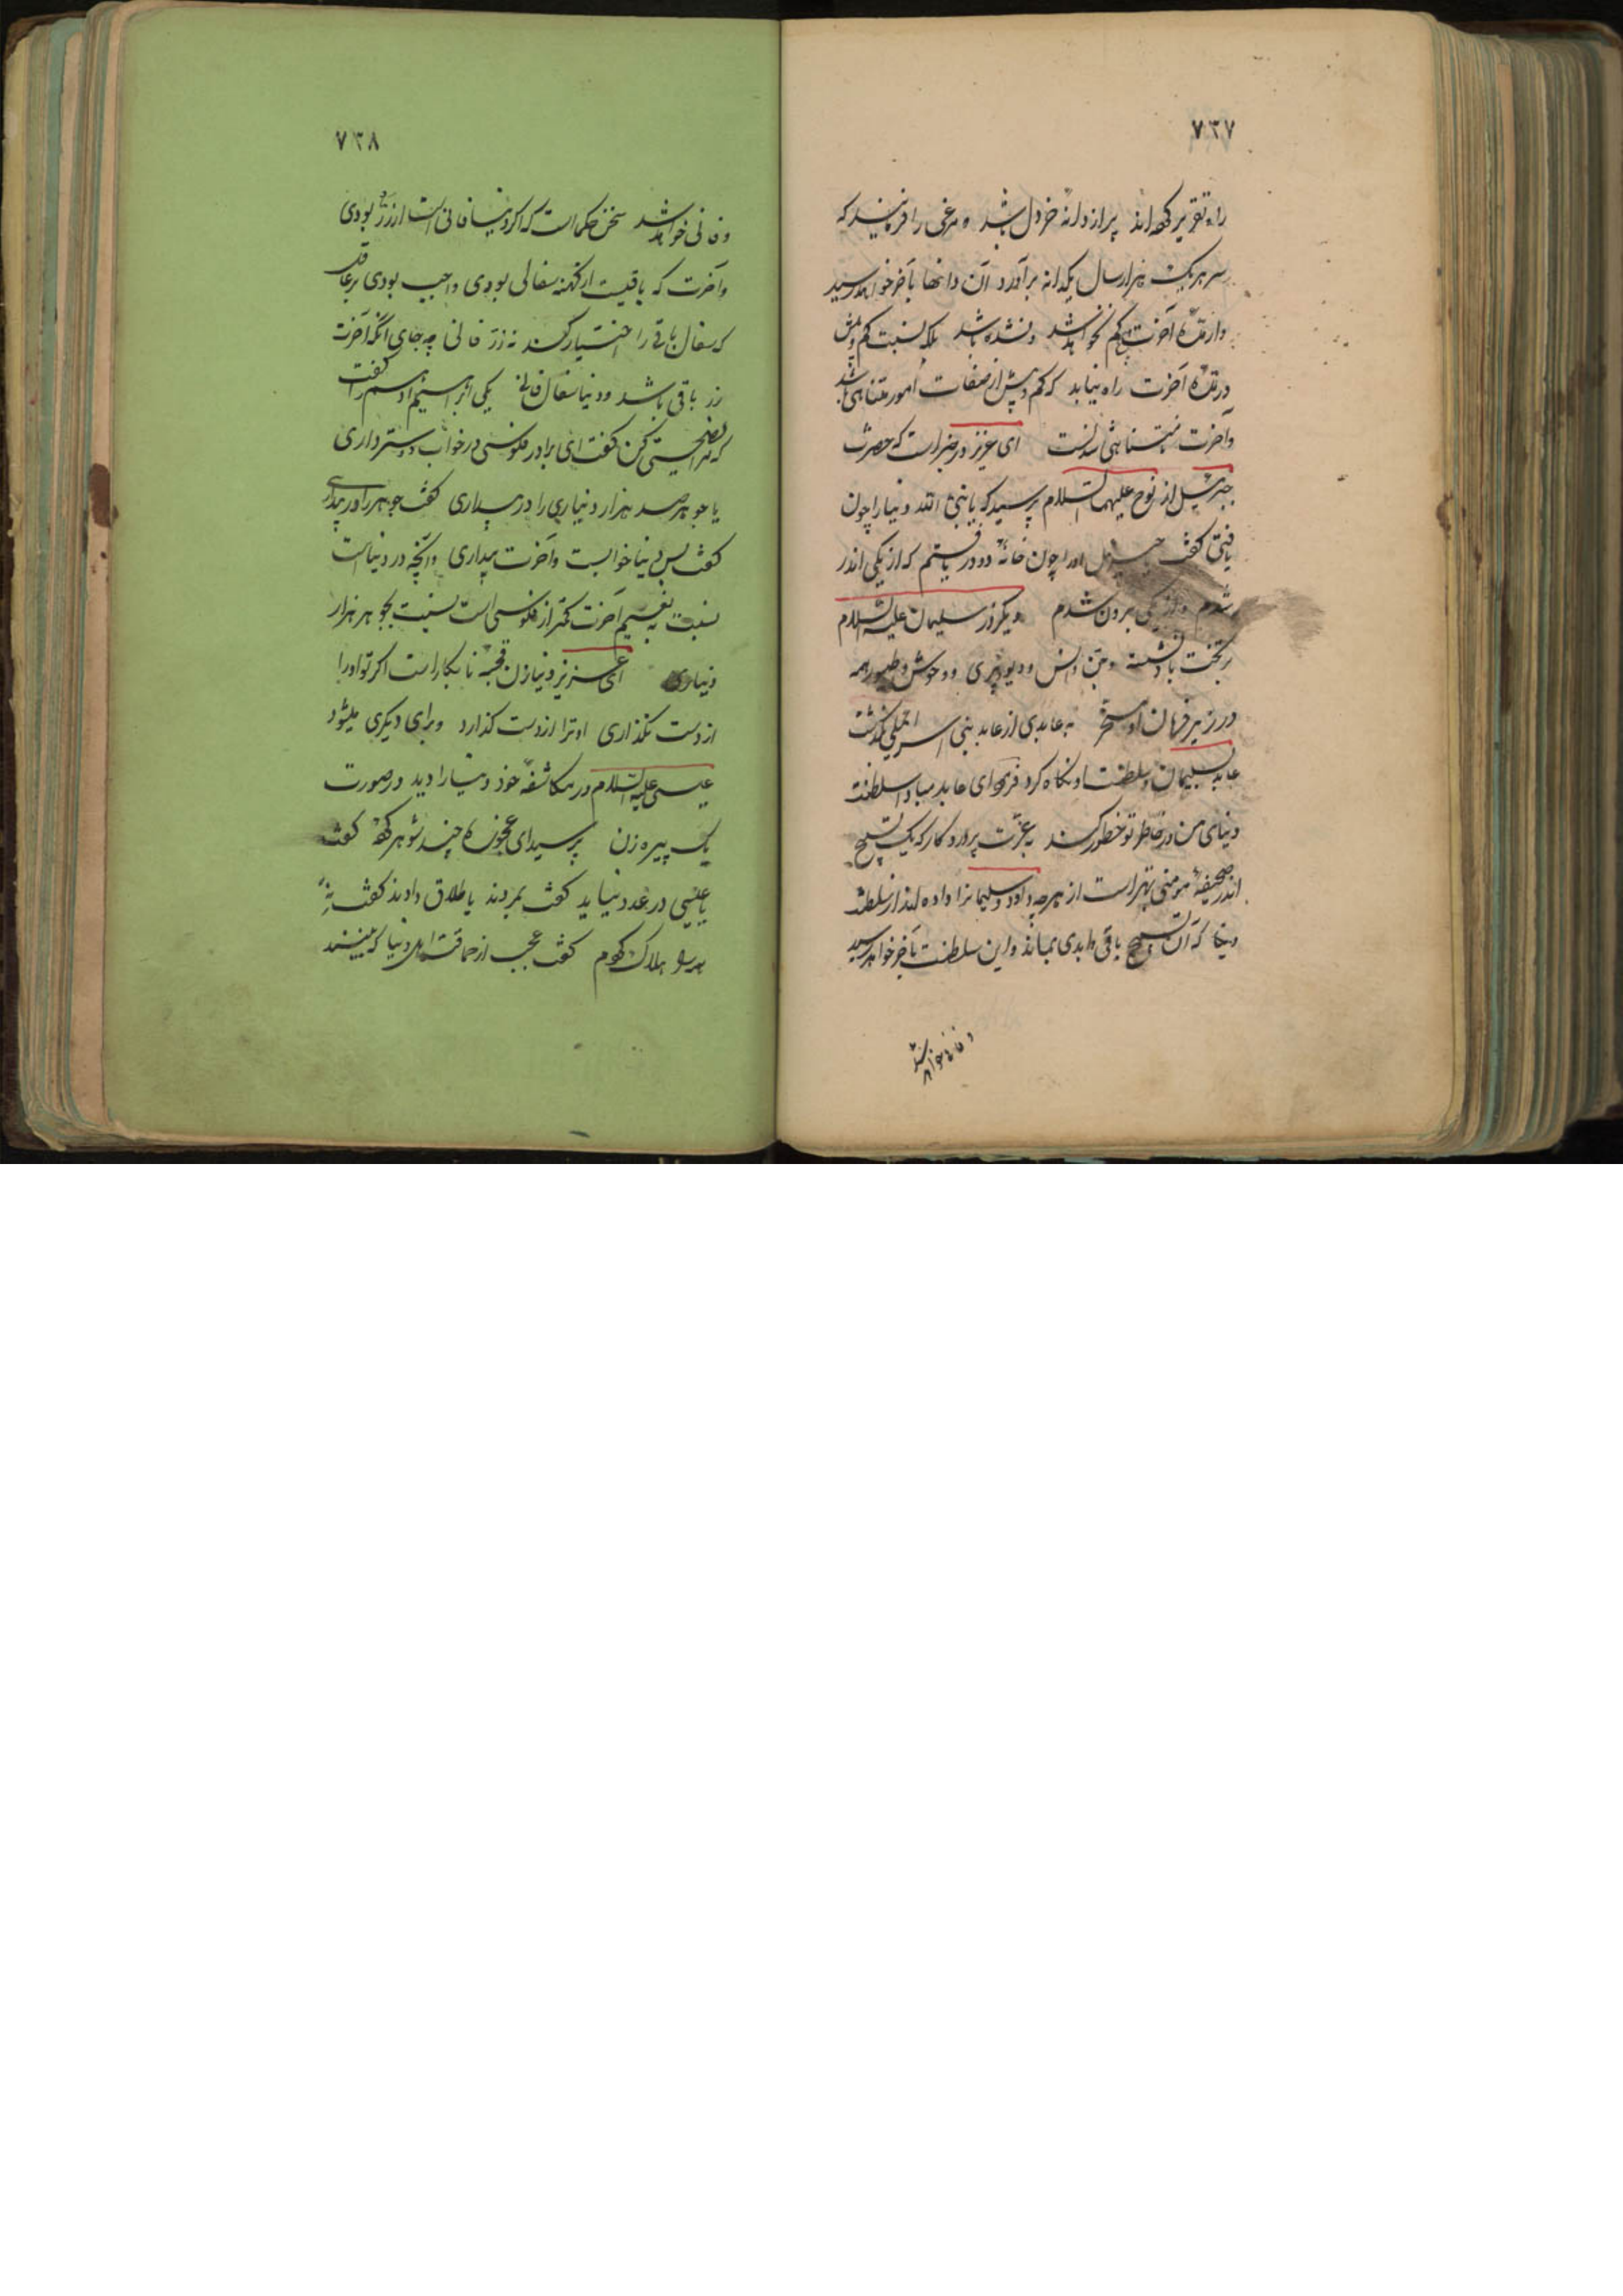 ۷۳۷
راه تقریر کرده‌اند پر از دانهٔ خردل باشد و مرغی را فرمایند که
سر هر یک هزار سال یکدانه بردارد آن دانها بآخر خواهد رسید
و از مدّهٔ آخرت هیچ کم نخواهد شد و نشده باشد بلکه نسبت کم و بیش
در مدّهٔ آخرت راه نیابد که کم و بیش از صفات امور متناهی باشد
و آخرت نامتناهی است ای عزیز در خبر است که حضرت
جبرئیل از نوح علیهما السلام پرسید که یا نبی الله دنیا را چون
یافتی گفت او را چون خانهٔ دو در یافتم که از یکی اندر
شدم و از یکی برون شدم دیگر روز سلیمان علیه السلام
بر تخت باد نشسته و جن و انس و دیو و پری و وحوش و طیور همه
در زیر فرمان او مسخّر به عابدی از عابد بنی اسرائیل بگذشت
عابد سلیمان و سلطنت او نگاه کرد فرمود ای عابد مبادا سلطنت
دنیای من در خاطر تو خطور کند بعزّت پروردگار که یک تسبیح
اندر صحیفهٔ مؤمنی بهتر است از هرچه داود و سلیمان را داده‌اند از سلطنت
دنیا که آن تسبیح باقی و ابدی بماند و این سلطنت بآخر خواهد رسید
و فانی خواهد شد
۷۳۸
و فانی خواهد شد سخن حکما است که اگر دنیا فانی است از زر بودی
و آخرت که باقیست از کهنه سفالی بودی واجب بودی بر عاقل
که سفال باقی را اختیار کند نه زر فانی چه جای آنکه آخرت
زر باقی باشد و دنیا سفال فانی یکی ابراهیم ادهم را گفت
که مرا نصیحتی کن گفت ای برادر فلوسی در خواب دوستر داری
یا جوهر صد هزار دیناری را در بیداری گفت جوهر را در بیداری
گفت پس دنیا خوابست و آخرت بیداری و آنچه در دنیا است
نسبت به نعیم آخرت کمتر از فلوسی است نسبت بجوهر هزار
دیناری ای عزیز دنیا زن قحبهٔ نابکار است اگر تو او را
از دست نگذاری او ترا از دست گذارد و برای دیگری میشود
عیسی علیه السلام در مکاشفهٔ خود دنیا را دید در صورت
یک پیره زن پرسید ای عجوزه چند شوهر کرده گفت
یا عیسی در عدد نیاید گفت بمردند یا طلاق دادند گفت نه
هلاک کردم گفت عجب از حماقت اهل دنیا که می‌بینند